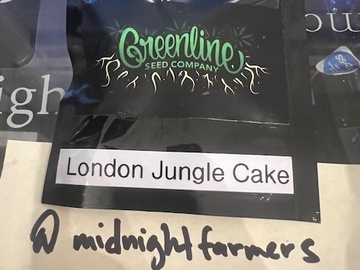 Greenline
SEED COMPANY
London Jungle Cake
@ midnightfarmers